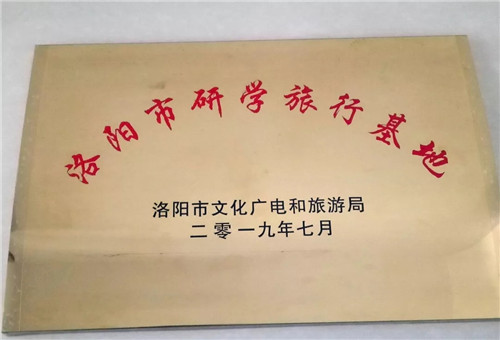 洛阳市研学旅行基地
洛阳市文化广电和旅游局
二零一九年七月